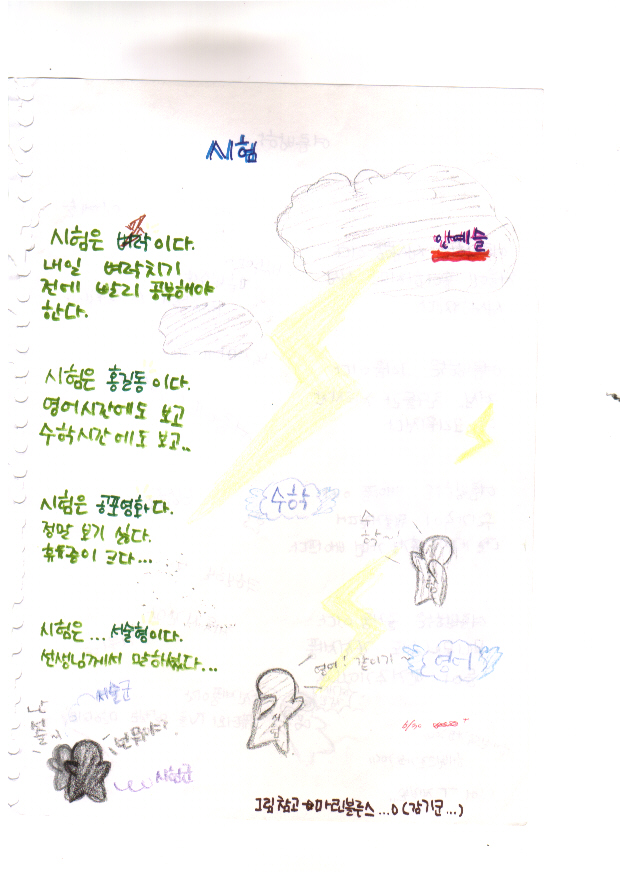 시험
안예슬
시험은 벼락이다.
내일 벼락치기
전에 빨리 공부해야
한다.
시험은 홍길동이다.
영어시간에도 보고
수학시간에도 보고..
시험은 공포영화다.
정말 보기 싫다.
휴유증이 크다...
시험은 ... 서술형이다.
선생님께서 말하셨다...
수학
수
학~
영어! 같이가~
영어
서술군
난
시험군
그림참고 → 마린블루스...o(감기군...)